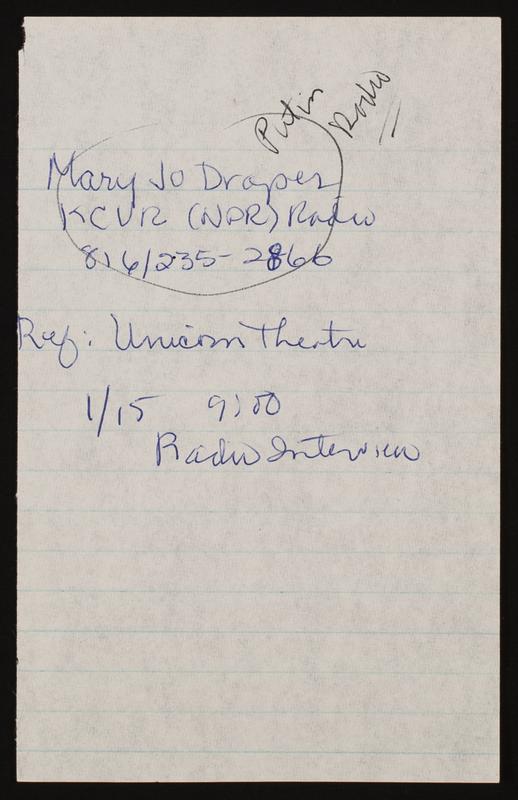 Put in
Radio
Mary Jo Draper
KCUR (NPR) Radio
816/235-2866
Ref: Unicorn Theatre
1/15 9:00
Radio Interview